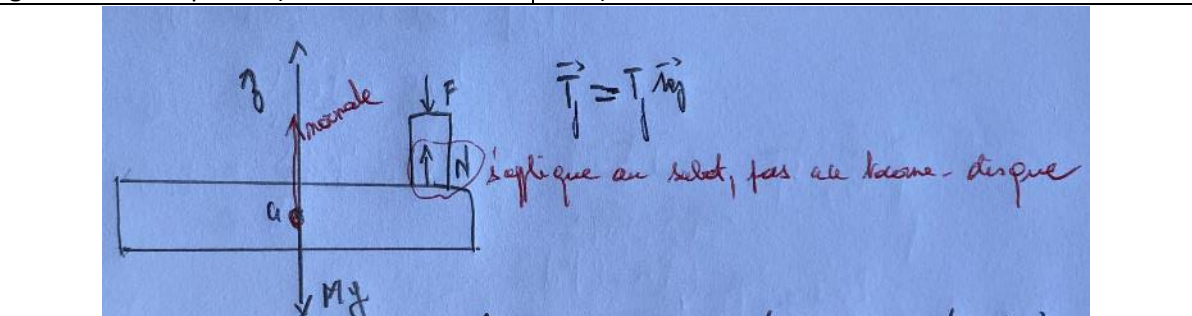 z
normale
F
T⃗j = Tj
N
s'applique au sabot, pas au tourne-disque
G
Mg